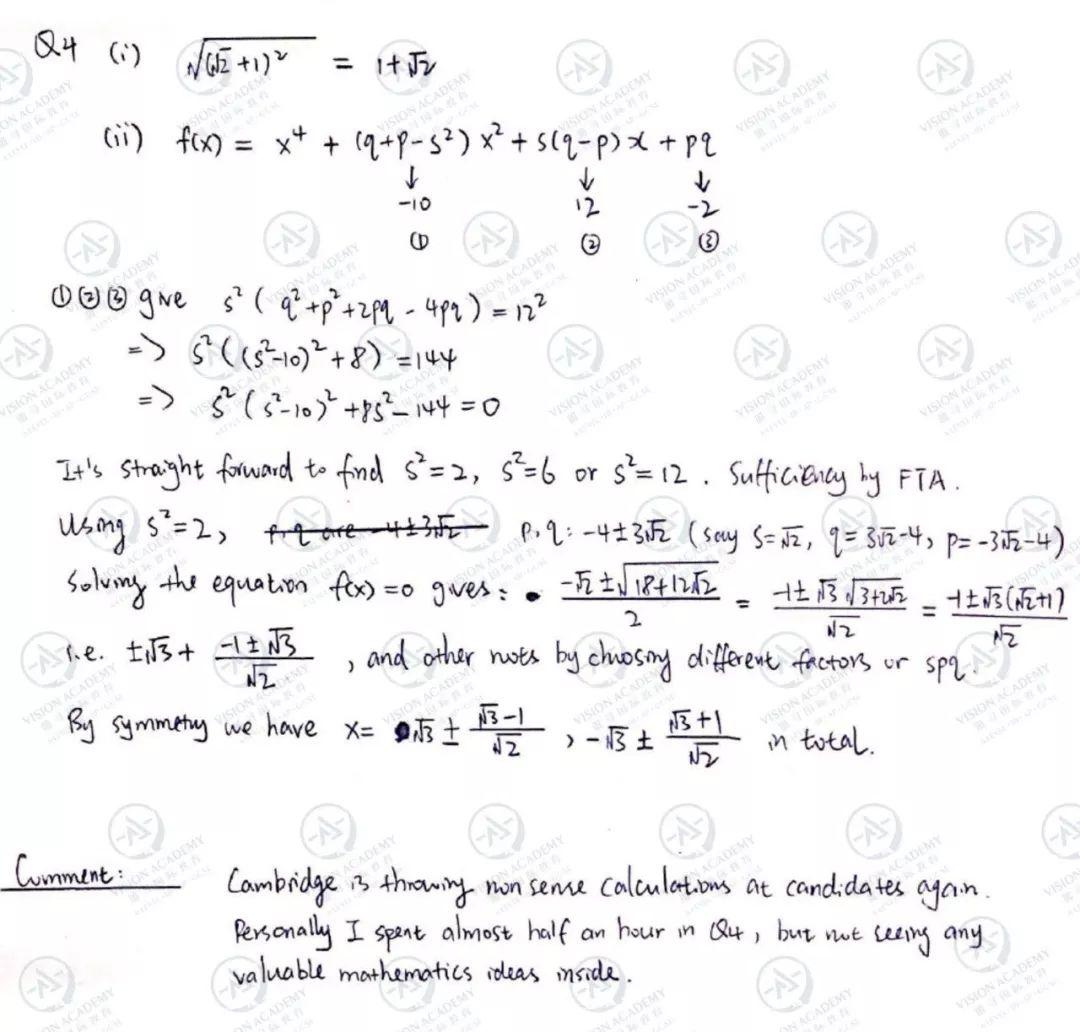 Q4 (i) √(√2 +1)² = 1+√2
(ii) f(x) = x⁴ + (q+p-s²) x² + s(q-p) x + pq
↓ ↓ ↓
-10 12 -2
① ② ③
①②③ give s² ( q²+p²+2pq - 4pq ) = 12²
=> s²((s²-10)² + 8) = 144
=> s² (s²-10)² +8s² - 144 = 0
It's straight forward to find s²=2, s²=6 or s²=12. Sufficiency by FTA.
Using s²=2, p,q are -4±3√2 p,q: -4±3√2 (say s=√2, q=3√2-4, p=-3√2-4)
Solving the equation f(x)=0 gives: (-√2 ± √(18+12√2))/2 = (-1±√3 √(3+2√2))/√2 = (-1±√3(√2+1))/√2
i.e. ±√3 + (-1±√3)/√2, and other roots by choosing different factors or spq.
By symmetry we have x= √3 ± (√3-1)/√2, -√3 ± (√3+1)/√2 in total.
Comment: Cambridge is throwing non sense calculations at candidates again.
Personally I spent almost half an hour in Q4, but not seeing any
valuable mathematics ideas inside.
VISION ACADEMY